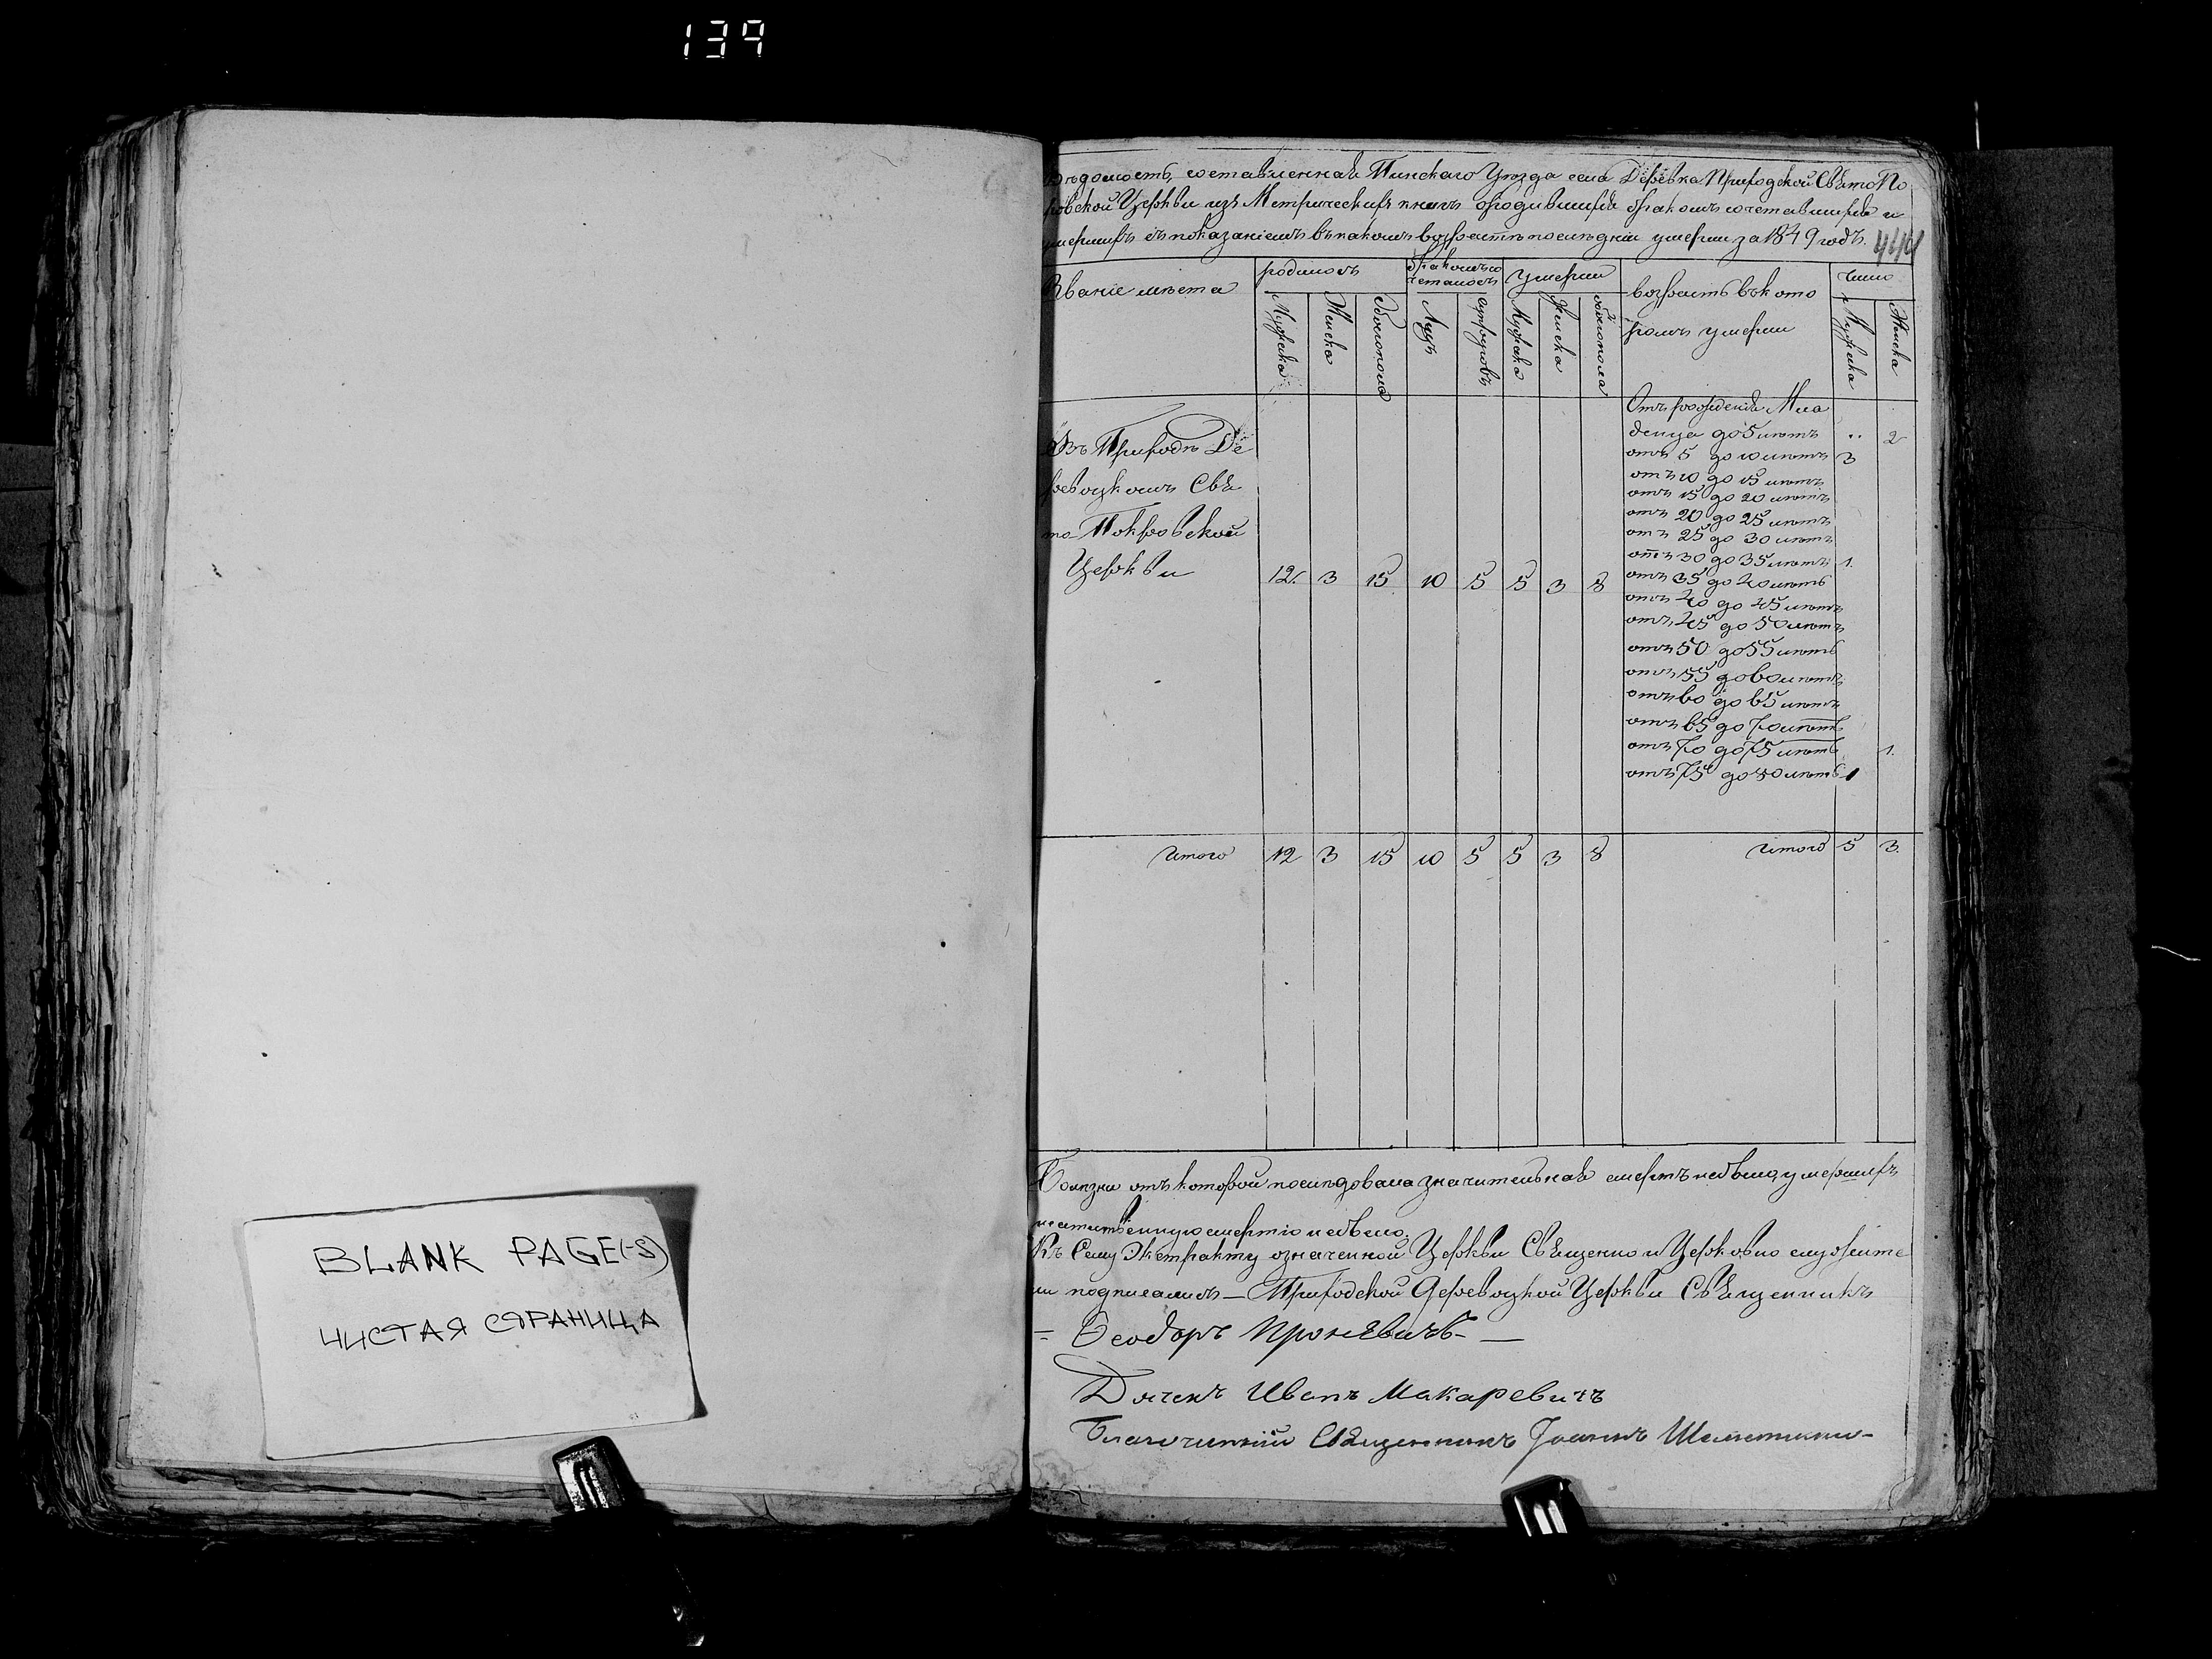 139
BLANK PAGE(-S)
ЧИСТАЯ СТРАНИЦА
Вѣдомость, составленная Пинскаго Уѣзда села Деревка Приходской Свято По
ровской Церкви изъ Метрическихъ книгъ о родившихся бракомъ сочетавшихся и
умершихъ съ показаніемъ въ какомъ возрастѣ послѣдніи умерли за 1849 годъ.
Званіе мѣста
родилось
бракомъ со
четалось
умерли
возрастъ въ кото
ромъ умерли
число
Мужеска
Женска
Обоего пола
Лицъ
супруговъ
Мужеска
Женска
обоего пола
Мужеска
Женска
Въ Приходѣ Де
ревоцкомъ Свя
то Покровской
Церкви 12. 3 15 10 5 5 3 8
Отъ рожденія Мла
денца до 5 лѣтъ .. 2
отъ 5 до 10 лѣтъ 3
отъ 10 до 15 лѣтъ
отъ 15 до 20 лѣтъ
отъ 20 до 25 лѣтъ
отъ 25 до 30 лѣтъ
отъ 30 до 35 лѣтъ 1.
отъ 35 до 40 лѣтъ
отъ 40 до 45 лѣтъ
отъ 45 до 50 лѣтъ
отъ 50 до 55 лѣтъ
отъ 55 до 60 лѣтъ
отъ 60 до 65 лѣтъ
отъ 65 до 70 лѣтъ
отъ 70 до 75 лѣтъ 1.
отъ 75 до 80 лѣтъ 1
Итого 12 3 15 10 5 5 3 8 Итого 5 3.
Болѣзни отъ которой послѣдовала значительная смерть небыло, умершихъ
смертію небыло.
Къ Сему Экстракту означенной Церкви Священно и Церковно служите
ли подписались — Приходской Деревоцкой Церкви Священникъ
= Ѳеодоръ Проневичъ —
Дьячекъ Иванъ Макаревичъ
Благочинный Священникъ Іоаннъ